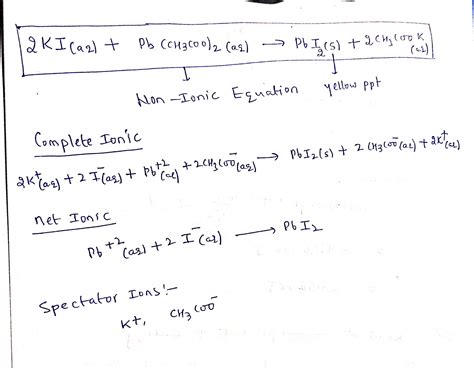 2KI(aq) + Pb(CH3COO)2(aq) → PbI2(s) + 2CH3COOK(aq)
Non-Ionic Equation yellow ppt
Complete Ionic
2K+(aq) + 2I-(aq) + Pb+2(aq) + 2CH3COO-(aq) → PbI2(s) + 2CH3COO-(aq) + 2K+(aq)
net Ionic
Pb+2(aq) + 2I-(aq) → PbI2
Spectator Ions:-
K+, CH3COO-